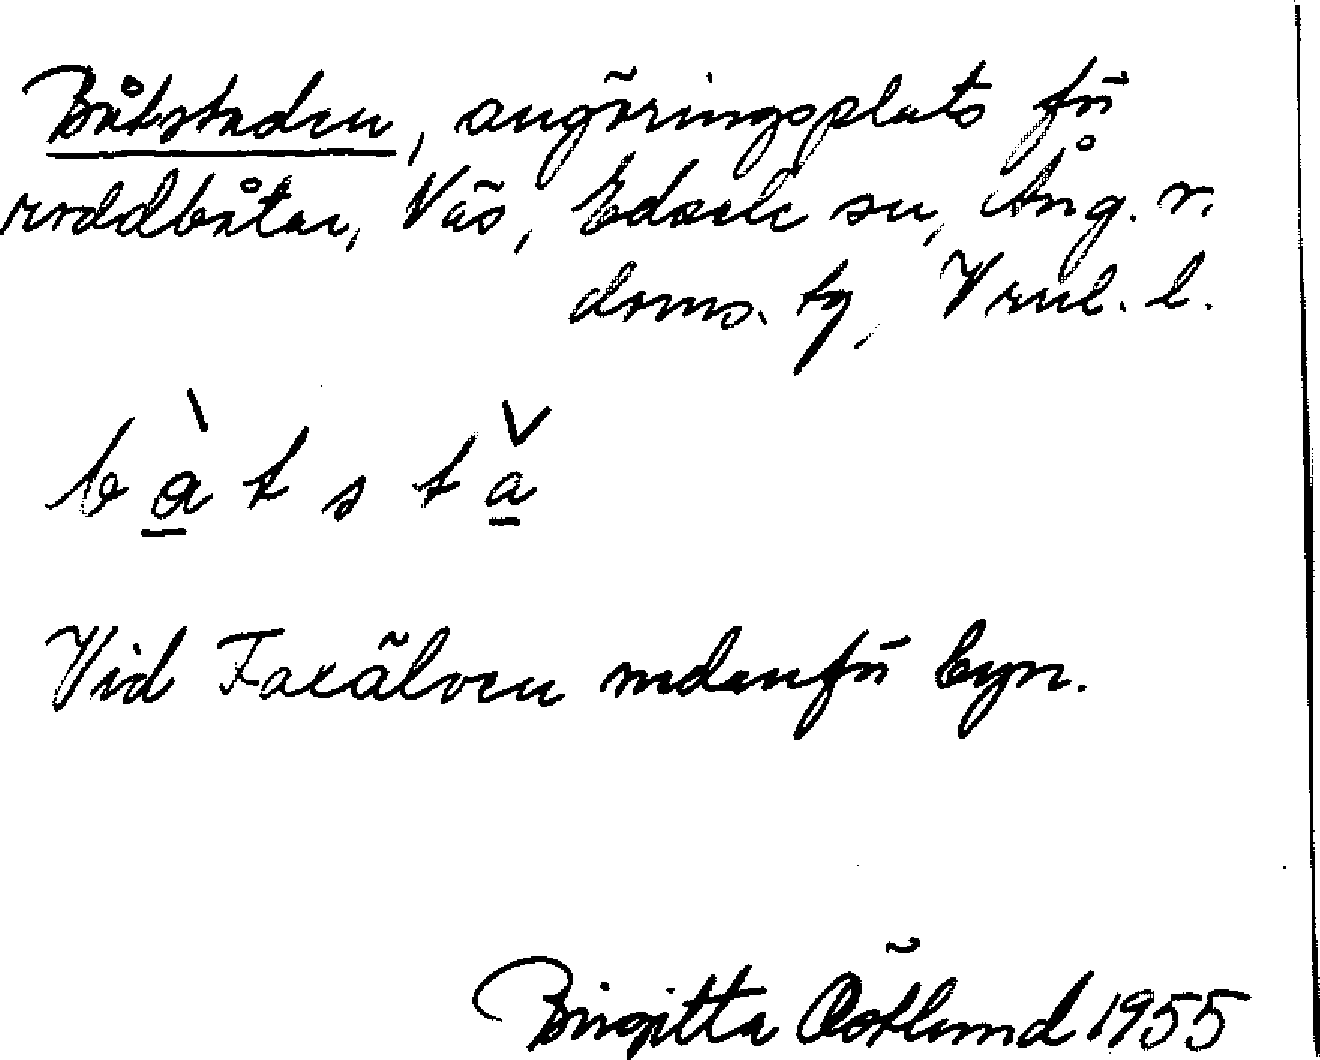 Båtstaden, angöringsplats för
roddbåtar, Näs, Edsele sn, Ång. v.
doms. tg, Vnl. l.
bàtstǎ
Vid Faxälven nedanför byn.
Birgitta Östlund 1955